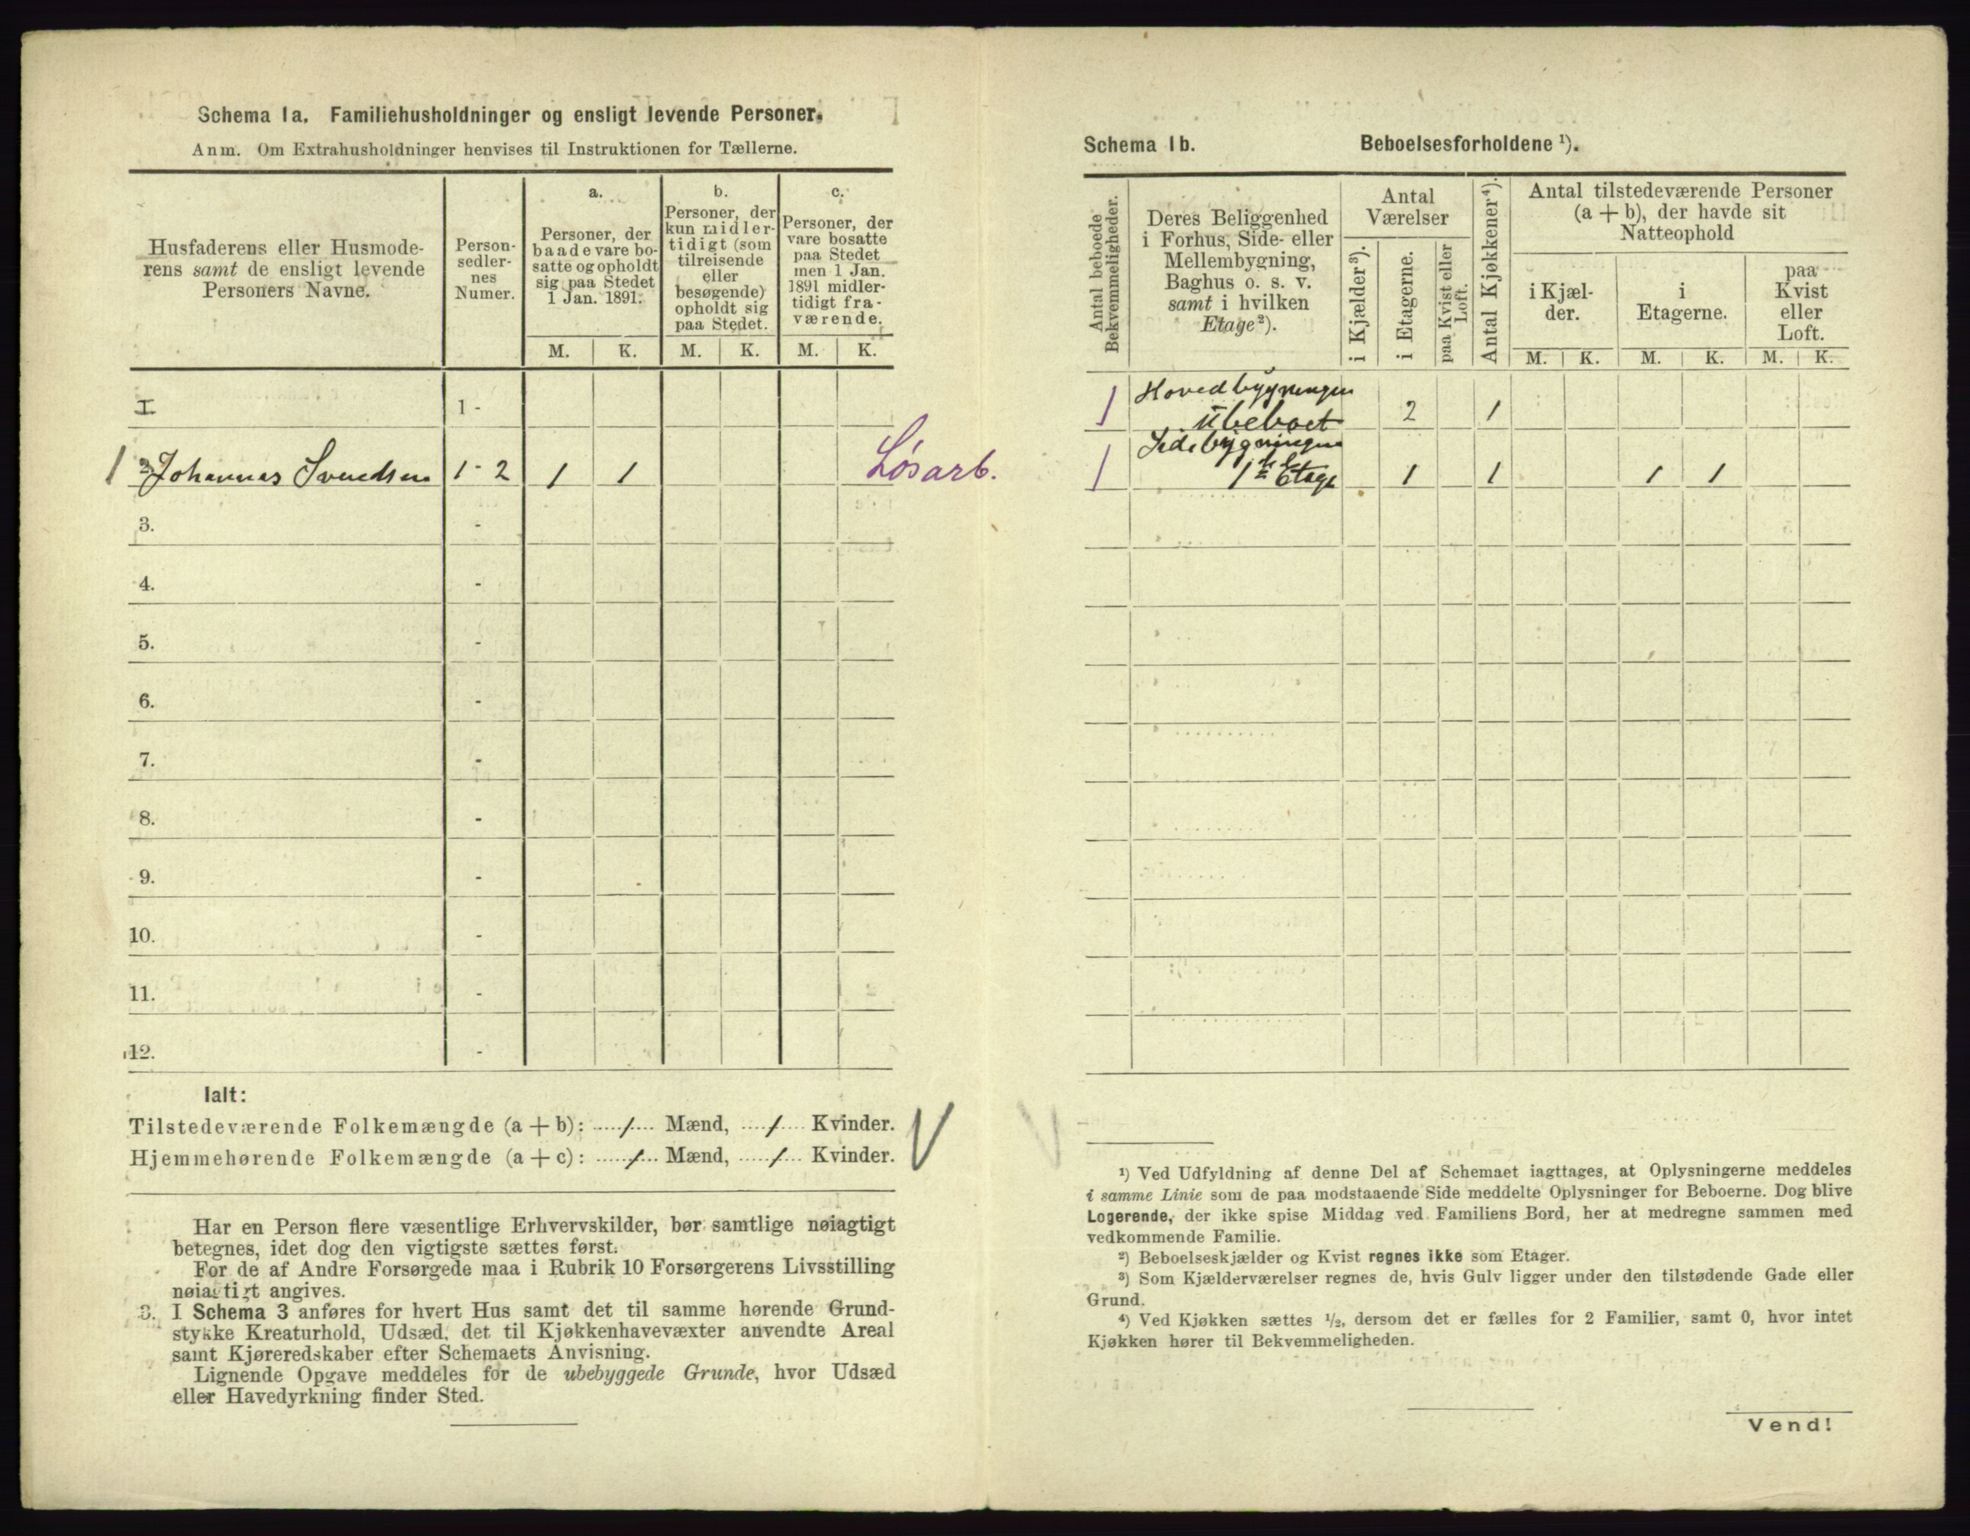 Schema 1a. Familiehusholdninger og ensligt levende Personer.
Anm. Om Extrahusholdninger henvises til Instruktionen for Tællerne.
Husfaderens eller Husmode-
rens samt de ensligt levende
Personers Navne.
Person-
sedler-
nes
Numer.
a.
Personer, der
baade vare bo-
satte og opholdt
sig paa Stedet
1 Jan. 1891.
b.
Personer, der
kun midler-
tidigt (som
tilreisende
eller
besøgende)
opholdt sig
paa Stedet.
c.
Personer, der
vare bosatte
paa Stedet
men 1 Jan.
1891 midler-
tidigt fra-
værende.
M. K. M. K. M. K.
I 1 -
1 2 Johannas Svendsen 1 - 2 1 1 Løsarb.
3. -
4. -
5. -
6. -
7. -
8. -
9. -
10. -
11. -
12. -
Ialt:
Tilstedeværende Folkemængde (a + b): 1 Mænd, 1 Kvinder.
Hjemmehørende Folkemængde (a + c): 1 Mænd, 1 Kvinder.
Har en Person flere væsentlige Erhvervskilder, bør samtlige nøiagtigt
betegnes, idet dog den vigtigste sættes først.
For de af Andre Forsørgede maa i Rubrik 10 Forsørgerens Livsstilling
nøiagtigt angives.
3. I Schema 3 anføres for hvert Hus samt det til samme hørende Grund-
stykke Kreaturhold, Udsæd, det til Kjøkkenhavevæxter anvendte Areal
samt Kjøreredskaber efter Schemaets Anvisning.
Lignende Opgave meddeles for de ubebyggede Grunde, hvor Udsæd
eller Havedyrkning finder Sted.
Schema 1b. Beboelsesforholdene ¹).
Antal beboede
Bekvemmeligheder.
Deres Beliggenhed
i Forhus, Side- eller
Mellembygning,
Baghus o. s. v.
samt i hvilken
Etage²).
Antal
Værelser
i Kjælder³).
i Etagerne.
paa Kvist eller
Loft.
Antal Kjøkkener⁴).
Antal tilstedeværende Personer
(a + b), der havde sit
Natteophold
i Kjæl-
der.
i
Etagerne.
paa
Kvist
eller
Loft.
M. K. M. K. M. K.
1 Hovedbygningen
ubeboet 2 1
1 Sidebygningen
1ste Etage 1 1 1 1
¹) Ved Udfyldning af denne Del af Schemaet iagttages, at Oplysningerne meddeles
i samme Linie som de paa modstaaende Side meddelte Oplysninger for Beboerne. Dog blive
Logerende, der ikke spise Middag ved Familiens Bord, her at medregne sammen med
vedkommende Familie.
²) Beboelseskjælder og Kvist regnes ikke som Etager.
³) Som Kjælderværelser regnes de, hvis Gulv ligger under den tilstødende Gade eller
Grund.
⁴) Ved Kjøkken sættes ½, dersom det er fælles for 2 Familier, samt 0, hvor intet
Kjøkken hører til Bekvemmeligheden.
Vend!